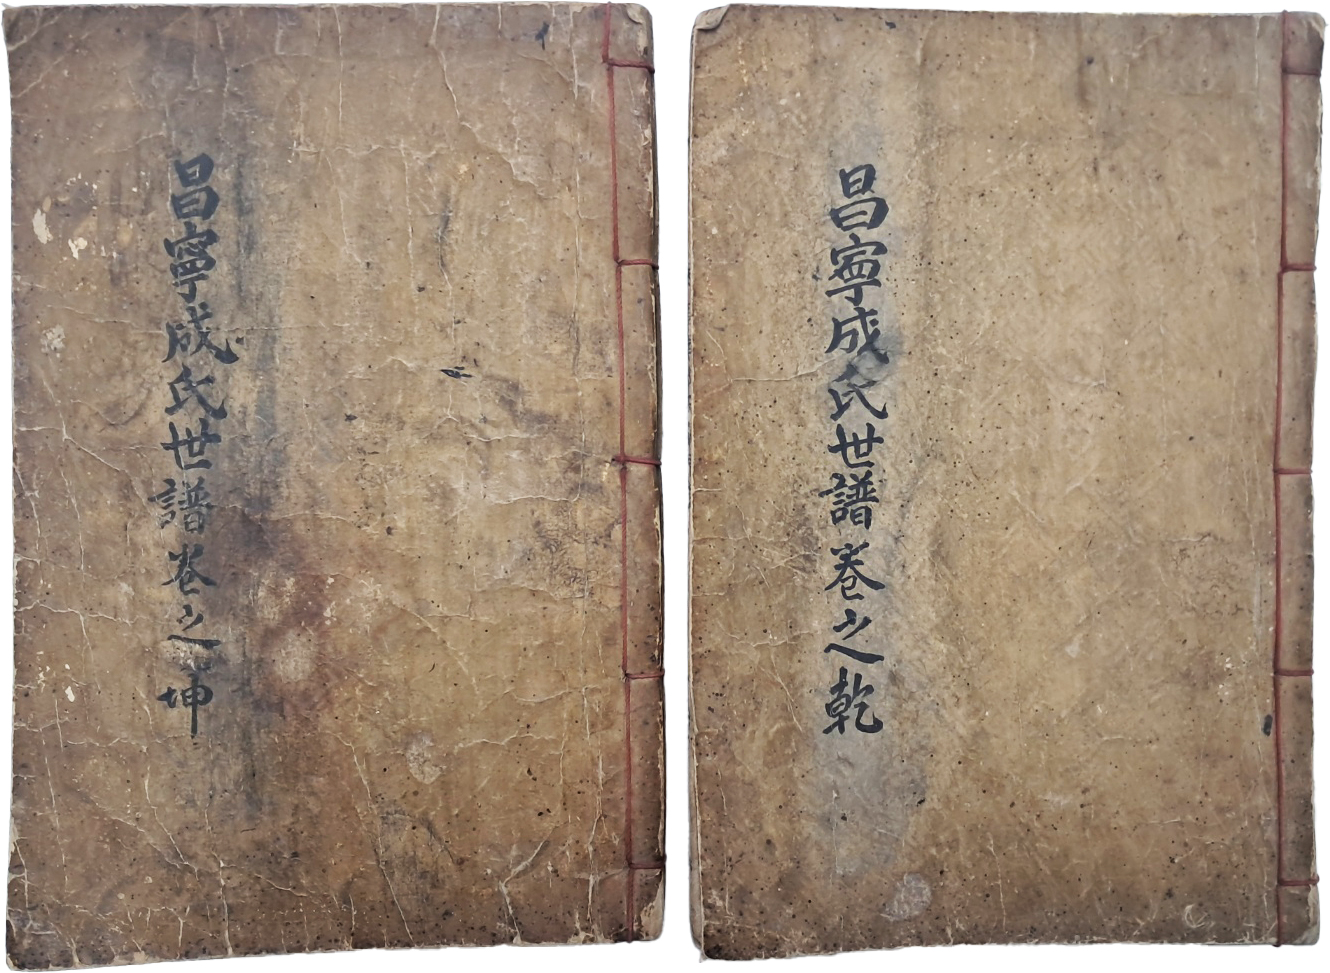 昌寧成氏世譜卷之乾
昌寧成氏世譜卷之坤